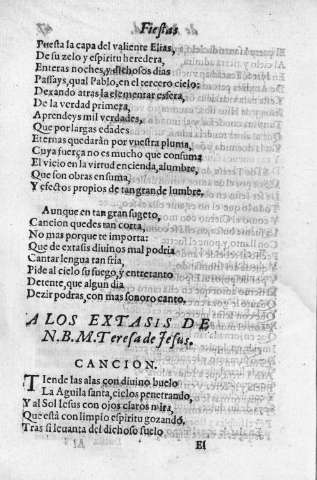 Fiestas
Puesta la capa del valiente Elias,
De su zelo y espiritu heredera,
Enteras noches, y dichosos dias
Passays, qual Pablo, en el tercero cielo:
Dexando atras la elementar esfera,
De la verdad primera,
Aprendeys mil verdades,
Que por largas edades
Eternas quedaràn por vuestra pluma,
Cuya fuerça no es mucho que consuma
El vicio en la virtud encienda, alumbre,
Que son obras en suma,
Y efectos propios de tan grande lumbre.
Aunque en tan gran sugeto,
Cancion quedes tan corta,
No mas porque te importa:
Que de extasis diuinos mal podria
Cantar lengua tan fria,
Pide al cielo su fuego, y entretanto
Detente, que algun dia
Dezir podras, con mas sonoro canto.
A LOS EXTASIS DE
N.B.M. Teresa de Jesus.
CANCION.
TIende las alas con diuino buelo
La Aguila santa, cielos penetrando,
Y al Sol Iesus con ojos claros mira,
Que està con limpio espiritu gozando,
Tras si leuanta del dichoso suelo
El